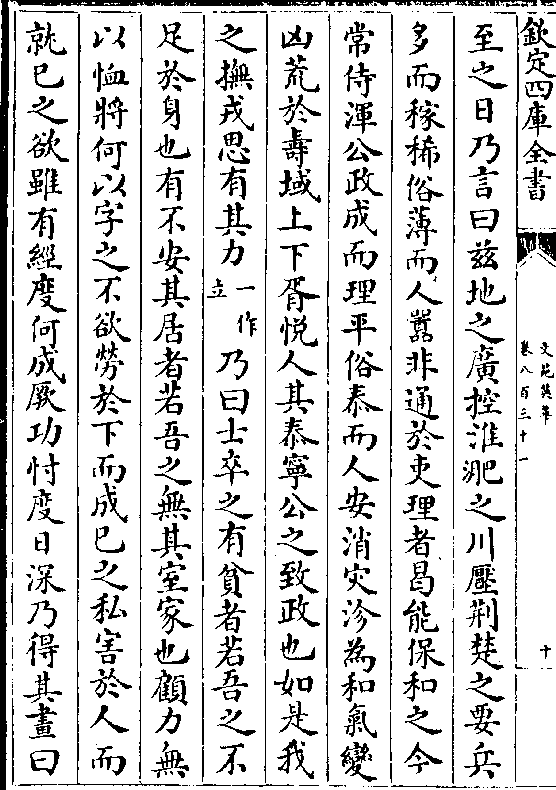 欽定四庫全書
文苑英華
卷八百三十一
十
至之日乃言曰兹地之廣控淮淝之川壓荆楚之要兵
多而稼稀俗薄而人囂非通於吏理者曷能保和之今
常侍渾公政成而理平俗泰而人安消灾沴為和氣變
凶荒於壽域上下胥悦人其泰寧公之致政也如是我
之撫戎思有其力一作立乃曰士卒之有貧者若吾之不
足於身也有不安其居者若吾之無其室家也顧力無
以恤將何以字之不欲勞於下而成已之私害於人而
就已之欲雖有經度何成厥功忖度日深乃得其畫曰